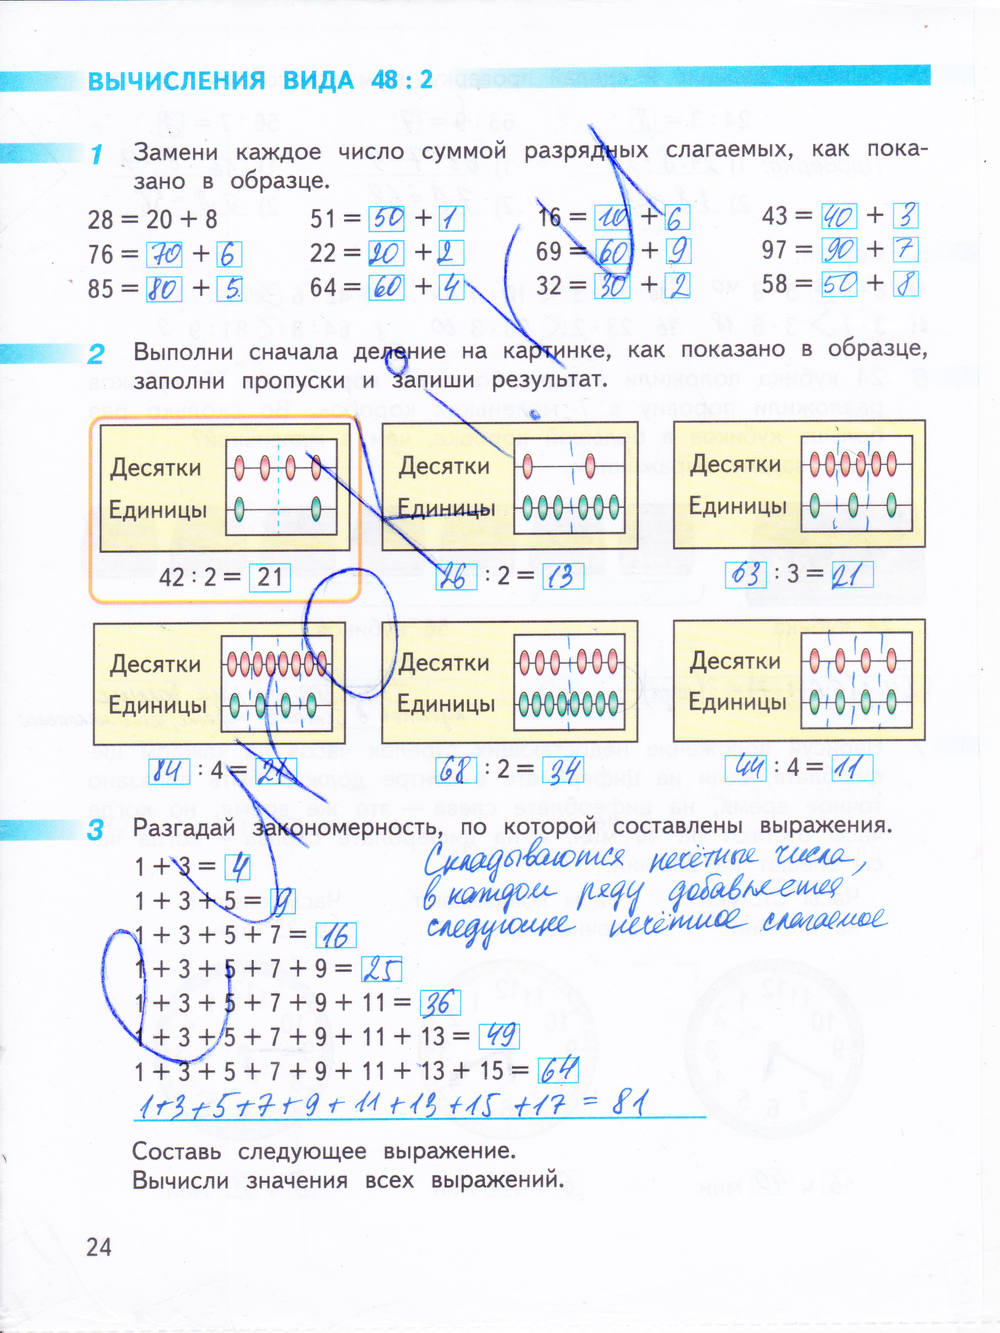 ВЫЧИСЛЕНИЯ ВИДА 48 : 2
1 Замени каждое число суммой разрядных слагаемых, как пока-
зано в образце.
28 = 20 + 8 51 = 50 + 1 16 = 10 + 6 43 = 40 + 3
76 = 70 + 6 22 = 20 + 2 69 = 60 + 9 97 = 90 + 7
85 = 80 + 5 64 = 60 + 4 32 = 30 + 2 58 = 50 + 8
2 Выполни сначала деление на картинке, как показано в образце,
заполни пропуски и запиши результат.
Десятки Десятки Десятки
Единицы Единицы Единицы
42 : 2 = 21 26 : 2 = 13 63 : 3 = 21
Десятки Десятки Десятки
Единицы Единицы Единицы
84 : 4 = 21 68 : 2 = 34 44 : 4 = 11
3 Разгадай закономерность, по которой составлены выражения.
1 + 3 = 4 Складываются нечётные числа,
1 + 3 + 5 = 9 в каждом ряду добавляется
1 + 3 + 5 + 7 = 16 следующее нечётное слагаемое
1 + 3 + 5 + 7 + 9 = 25
1 + 3 + 5 + 7 + 9 + 11 = 36
1 + 3 + 5 + 7 + 9 + 11 + 13 = 49
1 + 3 + 5 + 7 + 9 + 11 + 13 + 15 = 64
1+3+5+7+9+11+13+15+17 = 81
Составь следующее выражение.
Вычисли значения всех выражений.
24